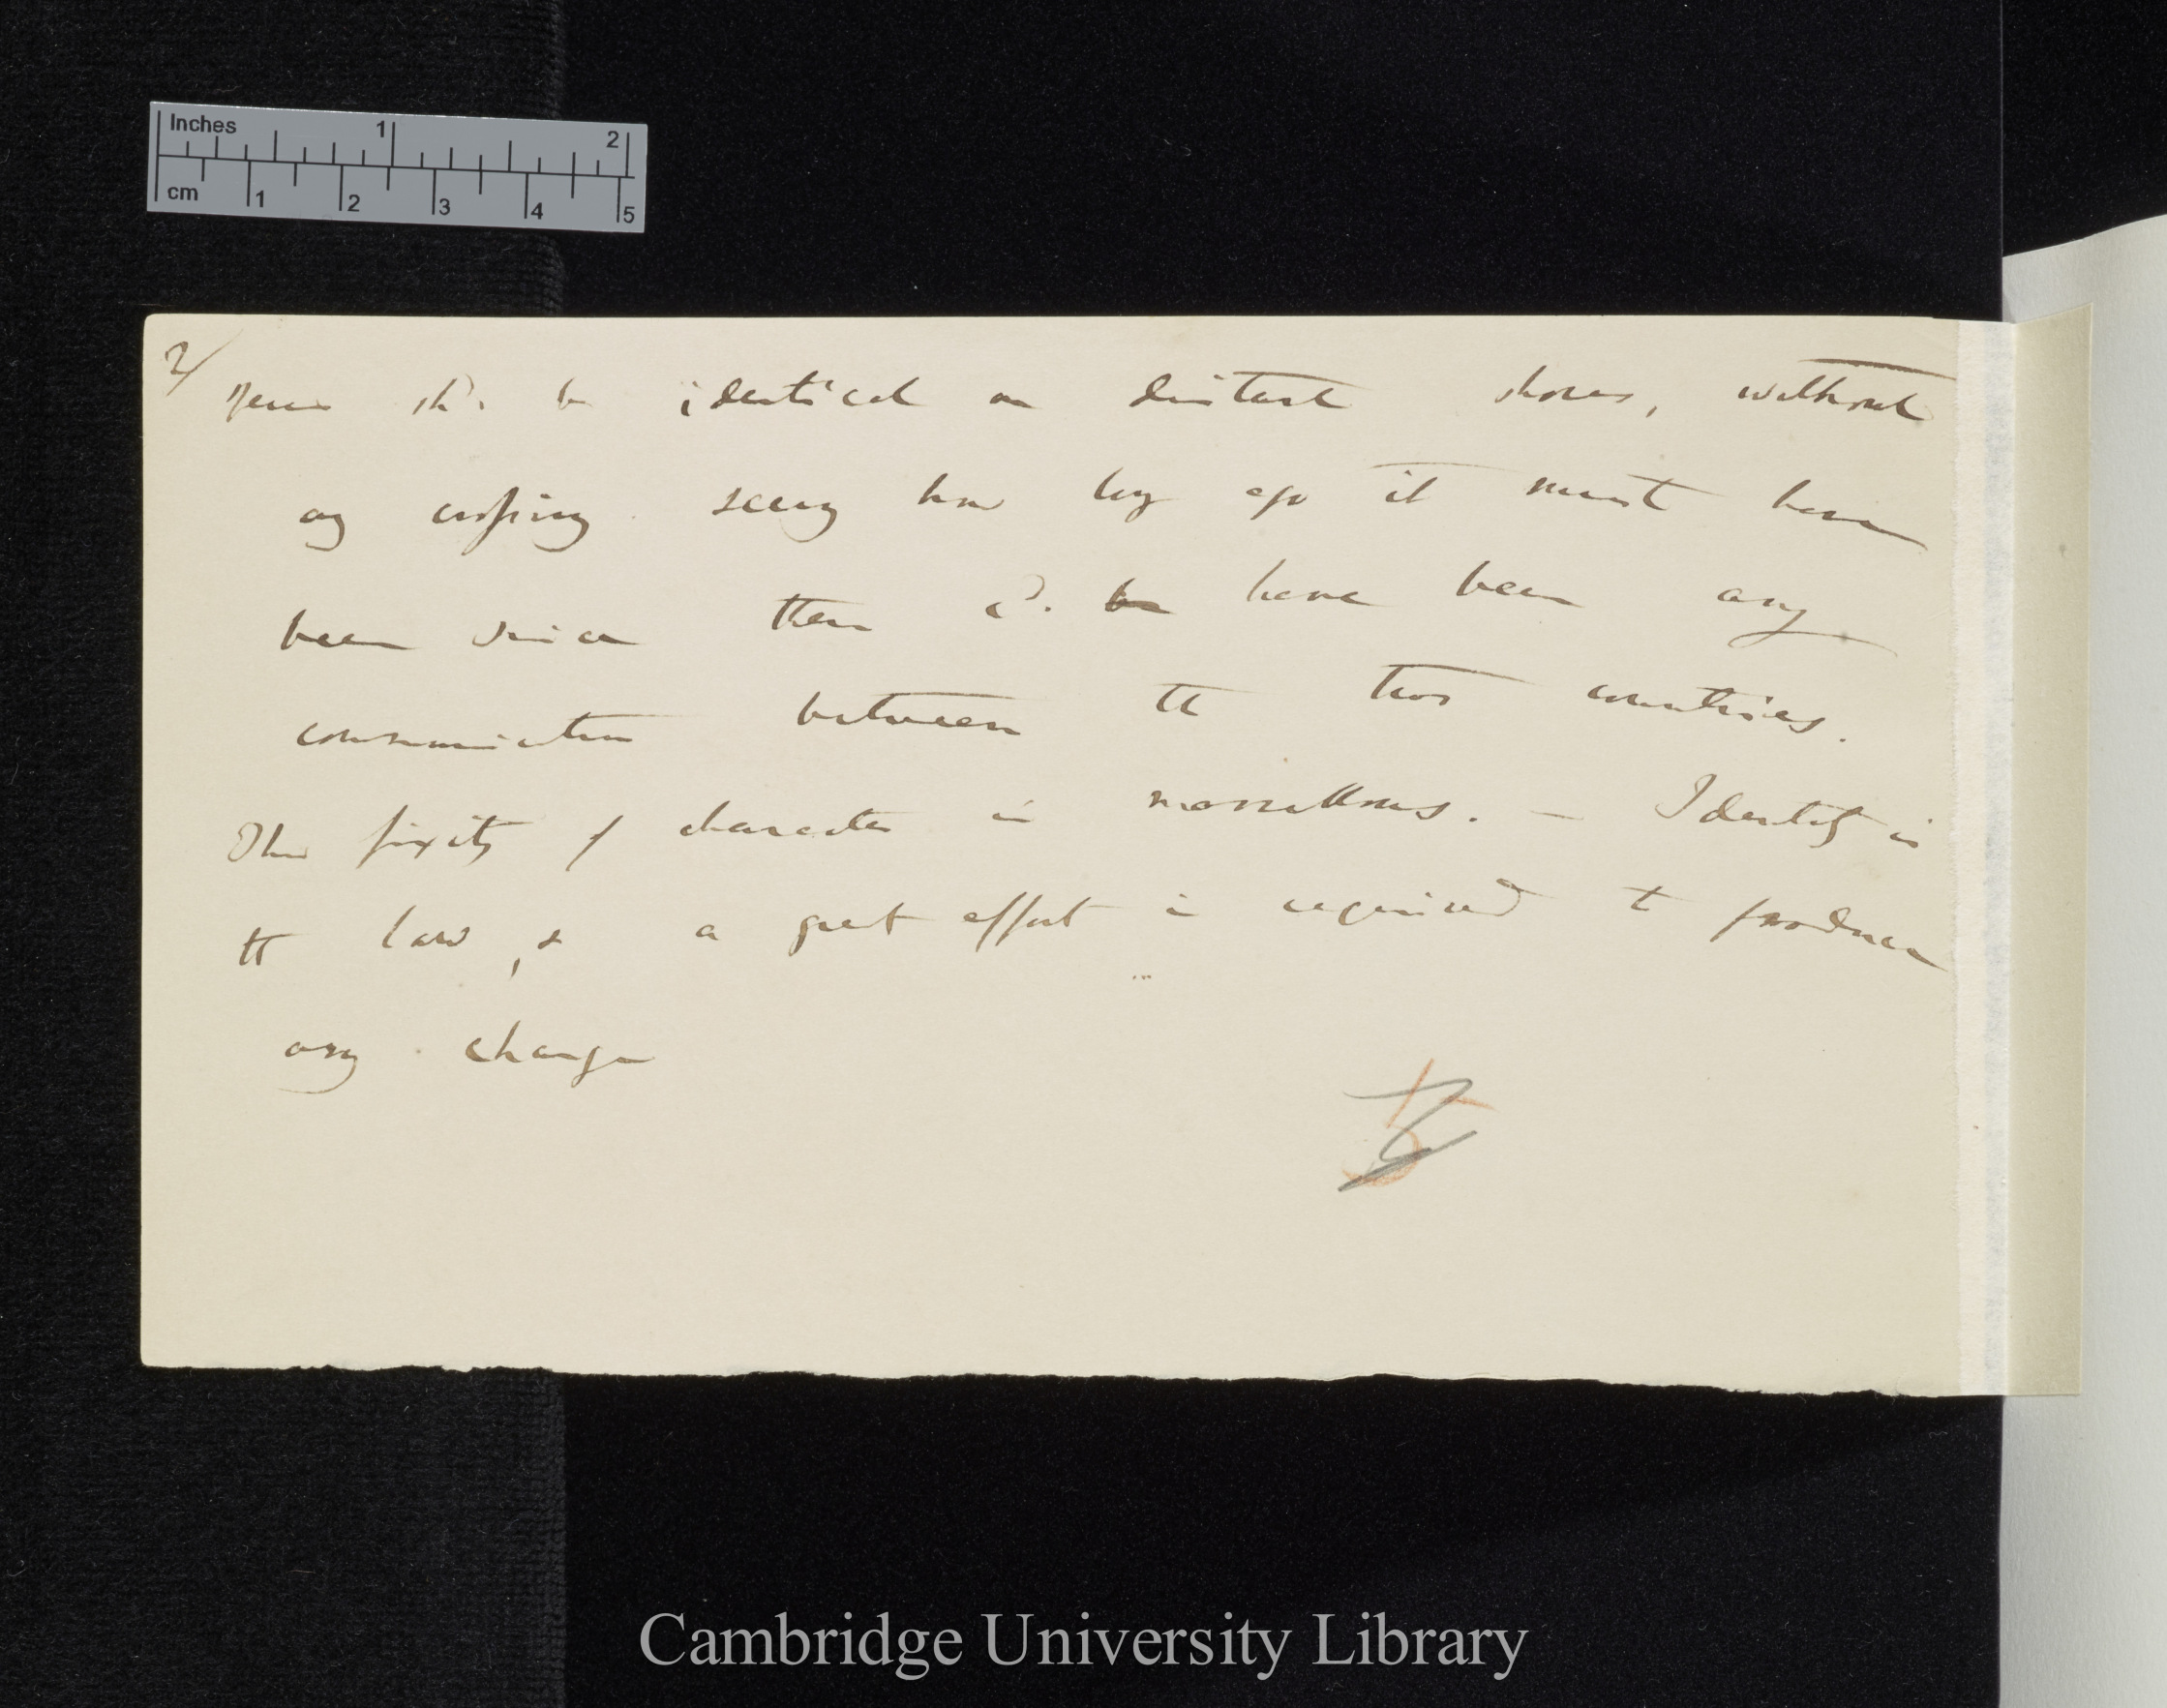 Inches 1 2
cm 1 2 3 4 5
2/
shd. be identical on distant shores, without
any crossing seeing how long ago it must have
been since there cd. be have been any
communication between the two countries.
This fixity of character is marvellous. — Identity is
the law, & a great effort is required to produce
any change
Cambridge University Library